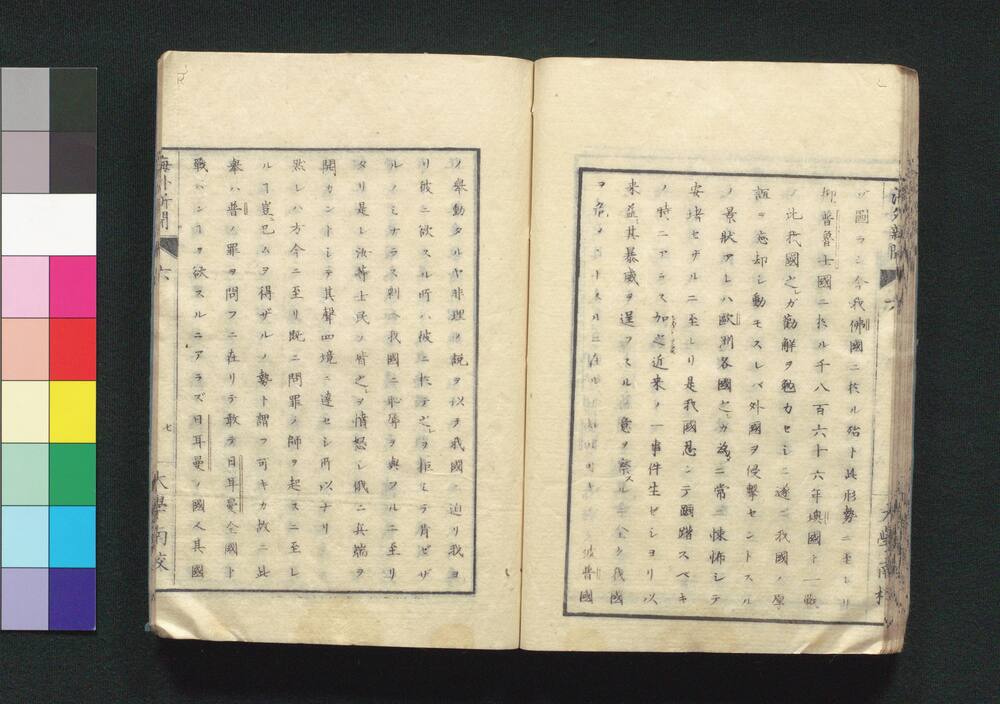 ヅ圖ラン今我佛國ニ於ル殆ト此形勢ニ至レリ
抑普魯士國ニ於ル千八百六十六年墺國ト一戰
ノ比我國之ガ勸解ヲ勉カセシニ遂ニ我國ノ厚
誼ヲ忘却シ動モスレバ外國ヲ侵擊セントスル
ノ景狀アレハ歐洲各國之カ為ニ常ニ悚怖シテ
安堵セザルニ至レリ是我國忍ンテ蹰躇スベキ
ノ時ニアラス加之近来ノ一事件生ゼショリ以
来益其暴威ヲ逞フスルノ意ヲ察スルニ全ク我國
ヲ危
彼普國
ノ舉動タルヤ非理ノ說ヲ以テ我國ニ迫リ我ヨ
リ彼ニ欲スル所ハ彼ニ於テ之ヲ拒ミテ肯ゼザ
ルノミナラス剩ヘ我國ニ恥辱ヲ與フルニ至リ
タリ是レ汝等士民ノ皆之ヲ憤怒シ俄ニ兵端ヲ
開カントシテ其聲四境ニ達セシ所以ナリ
然レハ方今ニ至リ既ニ問罪ノ師ヲ起スニ至レ
ルヿ豈已ムヲ得ザルノ勢ト謂フ可キカ故ニ此
舉ハ普ノ罪ヲ問フニ在リテ敢テ日耳曼全國ト
戰ハンヿヲ欲スルニアラズ日耳曼ノ國人其國
海外新聞
六
七
大學南校